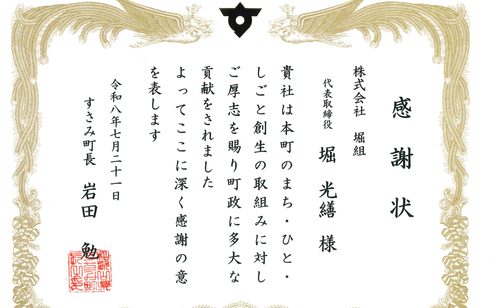 感謝状
株式会社 堀組
代表取締役 堀 光繕 様
貴社は本町のまち・ひと・
しごと創生の取組みに対し
ご厚志を賜り町政に多大な
貢献をされました
よってここに深く感謝の意
を表します
令和八年七月二十一日
すさみ町長 岩田 勉